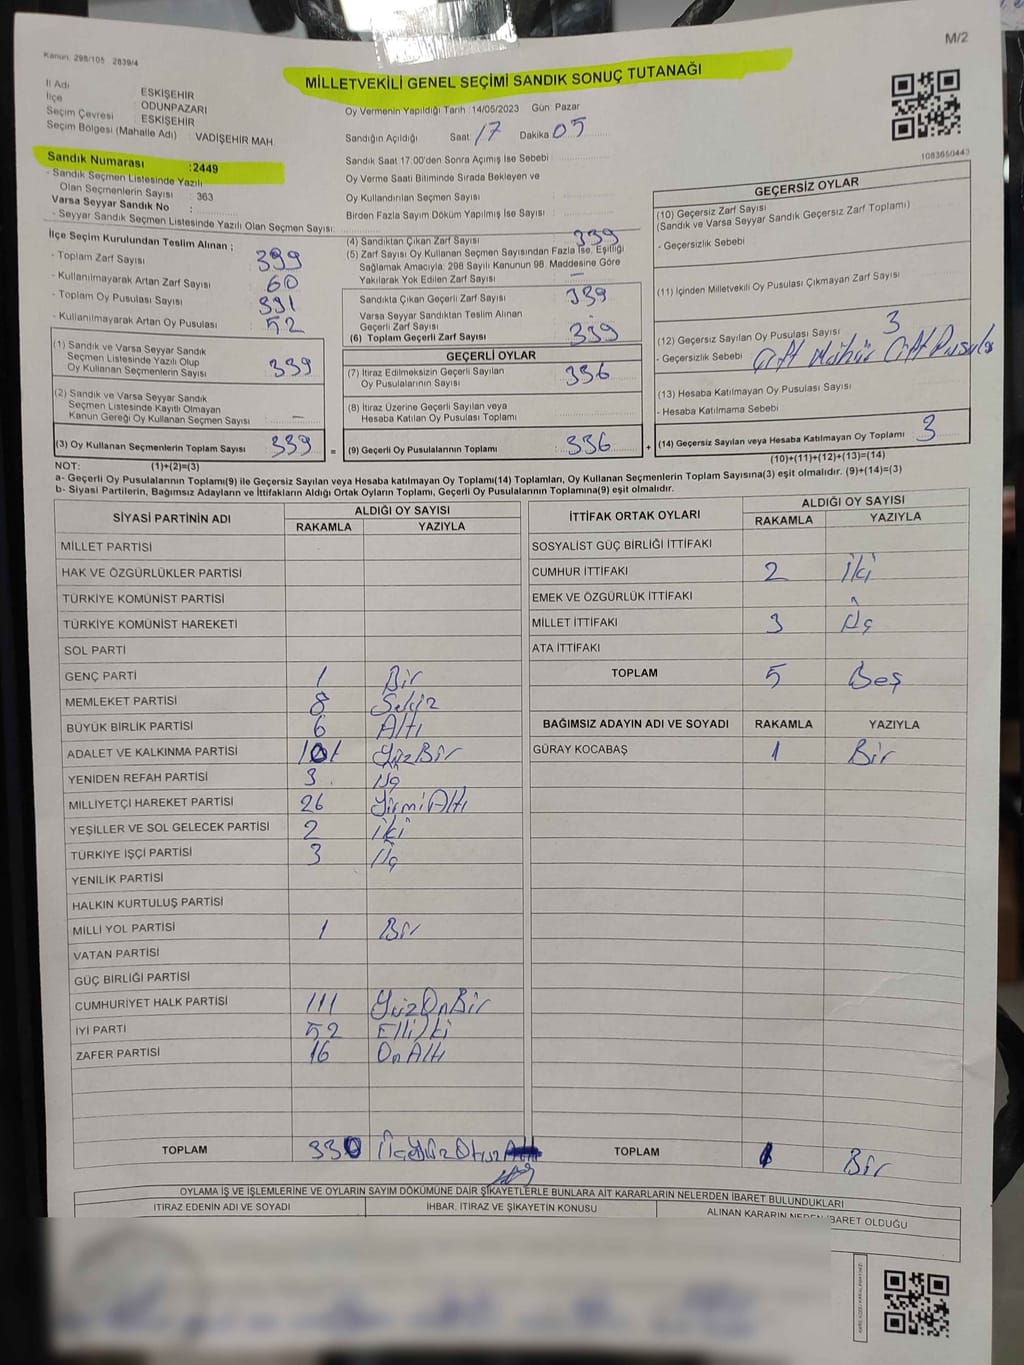 M/2
Kanun: 298/105 2839/4
MİLLETVEKİLİ GENEL SEÇİMİ SANDIK SONUÇ TUTANAĞI
İl Adı ESKİŞEHİR
İlçe ODUNPAZARI
Seçim Çevresi ESKİŞEHİR
Seçim Bölgesi (Mahalle Adı) : VADİŞEHİR MAH.
Sandık Numarası :2449
- Sandık Seçmen Listesinde Yazılı
Olan Seçmenlerin Sayısı : 363
Varsa Seyyar Sandık No :
- Seyyar Sandık Seçmen Listesinde Yazılı Olan Seçmen Sayısı:
Oy Vermenin Yapıldığı Tarih :14/05/2023 Gün: Pazar
Sandığın Açıldığı Saat: 17 Dakika 05
Sandık Saat 17.00'den Sonra Açımış İse Sebebi :
Oy Verme Saati Bitiminde Sırada Bekleyen ve
Oy Kullandırılan Seçmen Sayısı :
Birden Fazla Sayım Döküm Yapılmış İse Sayısı :
1083650443
İlçe Seçim Kurulundan Teslim Alınan ;
- Toplam Zarf Sayısı : 399
- Kullanılmayarak Artan Zarf Sayısı : 60
- Toplam Oy Pusulası Sayısı : 391
- Kullanılmayarak Artan Oy Pusulası : 52
(1) Sandık ve Varsa Seyyar Sandık
Seçmen Listesinde Yazılı Olup
Oy Kullanan Seçmenlerin Sayısı : 339
(2) Sandık ve Varsa Seyyar Sandık
Seçmen Listesinde Kayıtlı Olmayan
Kanun Gereği Oy Kullanan Seçmen Sayısı : —
(3) Oy Kullanan Seçmenlerin Toplam Sayısı : 339 =
(4) Sandıktan Çıkan Zarf Sayısı : 339
(5) Zarf Sayısı Oy Kullanan Seçmen Sayısından Fazla İse, Eşitliği
Sağlamak Amacıyla; 298 Sayılı Kanunun 98. Maddesine Göre
Yakılarak Yok Edilen Zarf Sayısı : —
Sandıkta Çıkan Geçerli Zarf Sayısı : 339
Varsa Seyyar Sandıktan Teslim Alınan
Geçerli Zarf Sayısı :
(6) Toplam Geçerli Zarf Sayısı : 339
GEÇERLİ OYLAR
(7) İtiraz Edilmeksizin Geçerli Sayılan
Oy Pusulalarının Sayısı : 336
(8) İtiraz Üzerine Geçerli Sayılan veya
Hesaba Katılan Oy Pusulası Toplamı :
(9) Geçerli Oy Pusulalarının Toplamı : 336 +
GEÇERSİZ OYLAR
(10) Geçersiz Zarf Sayısı
(Sandık ve Varsa Seyyar Sandık Geçersiz Zarf Toplamı) :
- Geçersizlik Sebebi :
(11) İçinden Milletvekili Oy Pusulası Çıkmayan Zarf Sayısı :
(12) Geçersiz Sayılan Oy Pusulası Sayısı : 3
- Geçersizlik Sebebi : Çift Mühür Çift Pusula
(13) Hesaba Katılmayan Oy Pusulası Sayısı :
- Hesaba Katılmama Sebebi :
(14) Geçersiz Sayılan veya Hesaba Katılmayan Oy Toplamı : 3
NOT: (1)+(2)=(3) (10)+(11)+(12)+(13)=(14)
a- Geçerli Oy Pusulalarının Toplamı(9) ile Geçersiz Sayılan veya Hesaba katılmayan Oy Toplamı(14) Toplamları, Oy Kullanan Seçmenlerin Toplam Sayısına(3) eşit olmalıdır. (9)+(14)=(3)
b- Siyasi Partilerin, Bağımsız Adayların ve İttifakların Aldığı Ortak Oyların Toplamı, Geçerli Oy Pusulalarının Toplamına(9) eşit olmalıdır.
SİYASİ PARTİNİN ADI ALDIĞI OY SAYISI
RAKAMLA YAZIYLA
MİLLET PARTİSİ
HAK VE ÖZGÜRLÜKLER PARTİSİ
TÜRKİYE KOMÜNİST PARTİSİ
TÜRKİYE KOMÜNİST HAREKETİ
SOL PARTİ
GENÇ PARTİ 1 Bir
MEMLEKET PARTİSİ 8 Sekiz
BÜYÜK BİRLİK PARTİSİ 6 Altı
ADALET VE KALKINMA PARTİSİ 101 YüzBir
YENİDEN REFAH PARTİSİ 3 Üç
MİLLİYETÇİ HAREKET PARTİSİ 26 YirmiAltı
YEŞİLLER VE SOL GELECEK PARTİSİ 2 İki
TÜRKİYE İŞÇİ PARTİSİ 3 Üç
YENİLİK PARTİSİ
HALKIN KURTULUŞ PARTİSİ
MİLLİ YOL PARTİSİ 1 Bir
VATAN PARTİSİ
GÜÇ BİRLİĞİ PARTİSİ
CUMHURİYET HALK PARTİSİ 111 YüzOnBir
İYİ PARTİ 52 Elliİki
ZAFER PARTİSİ 16 OnAltı
TOPLAM 330 ÜçYüzOtuz
İTTİFAK ORTAK OYLARI ALDIĞI OY SAYISI
RAKAMLA YAZIYLA
SOSYALİST GÜÇ BİRLİĞİ İTTİFAKI
CUMHUR İTTİFAKI 2 İki
EMEK VE ÖZGÜRLÜK İTTİFAKI
MİLLET İTTİFAKI 3 Üç
ATA İTTİFAKI
TOPLAM 5 Beş
BAĞIMSIZ ADAYIN ADI VE SOYADI RAKAMLA YAZIYLA
GÜRAY KOCABAŞ 1 Bir
TOPLAM 1 Bir
OYLAMA İŞ VE İŞLEMLERİNE VE OYLARIN SAYIM DÖKÜMÜNE DAİR ŞİKAYETLERLE BUNLARA AİT KARARLARIN NELERDEN İBARET BULUNDUKLARI
İTİRAZ EDENİN ADI VE SOYADI İHBAR, İTİRAZ VE ŞİKAYETİN KONUSU ALINAN KARARIN NEDEN İBARET OLDUĞU